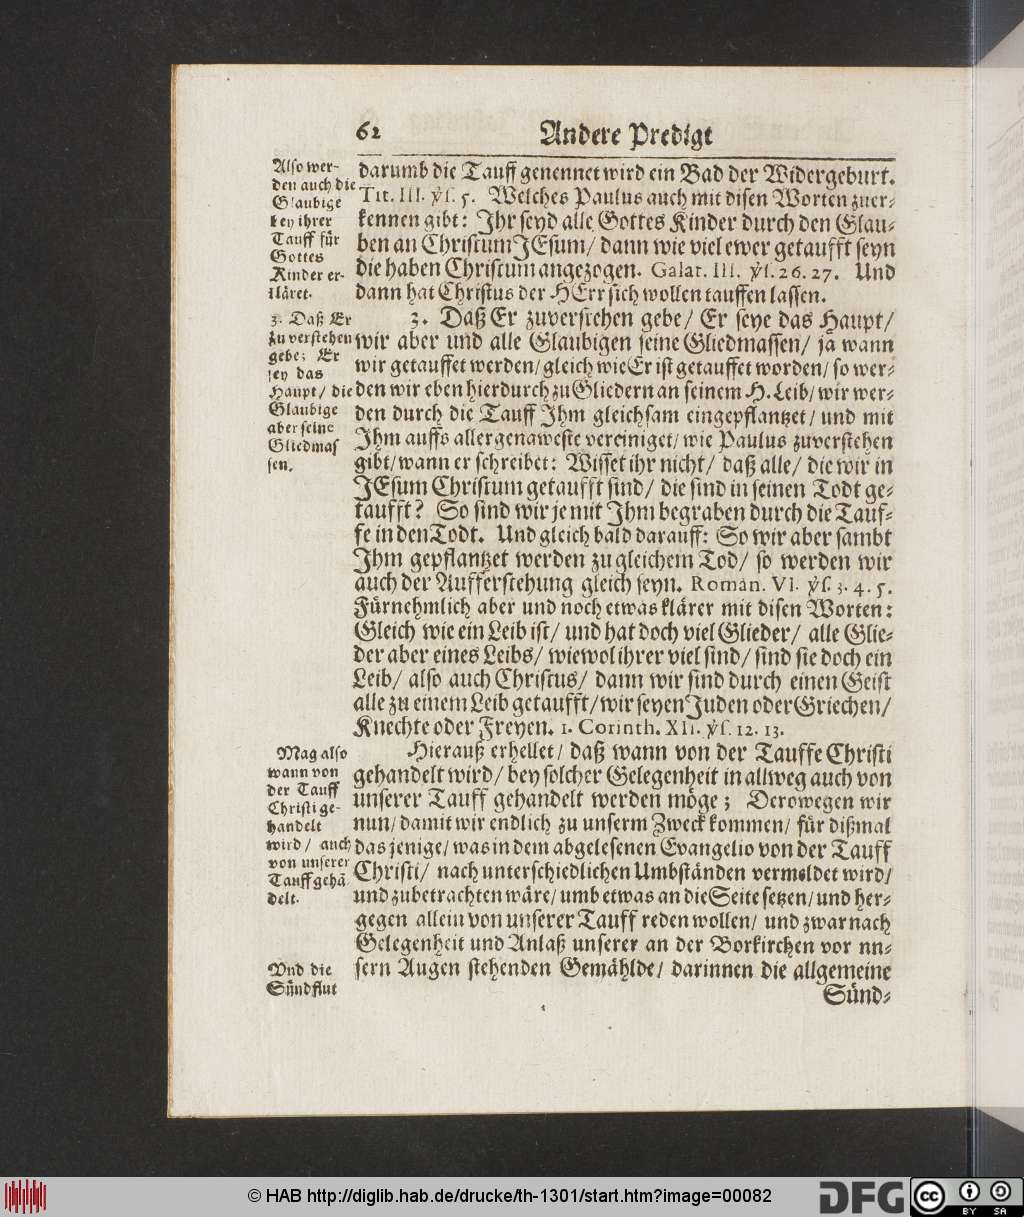 62
Andere Predigt
Also wer-
den auch die
Glaubige
bey ihrer
Tauff für
Gottes
Kinder er-
kläret.
darumb die Tauff genennet wird ein Bad der Widergeburt.
Tit. III. ℣ſ. 5. Welches Paulus auch mit disen Worten zuer-
kennen gibt: Ihr seyd alle Gottes Kinder durch den Glau-
ben an Christum JEsum/ dann wie viel ewer getaufft seyn
die haben Christum angezogen. Galat. III. ℣ſ. 26. 27. Und
dann hat Christus der HErr sich wollen tauffen lassen.
3. Daß Er
zu verstehen
gebe; Er
sey das
Haupt/ die
Glaubige
aber seine
Gliedmas
sen.
3. Daß Er zuverstehen gebe/ Er seye das Haupt/
wir aber und alle Glaubigen seine Gliedmassen/ ja wann
wir getauffet werden/ gleich wie Er ist getauffet worden/ so wer-
den wir eben hierdurch zu Gliedern an seinem H. Leib/ wir wer-
den durch die Tauff Ihm gleichsam eingepflantzet/ und mit
Ihm auffs allergenaweste vereiniget/ wie Paulus zuverstehen
gibt/ wann er schreibet: Wisset ihr nicht/ daß alle/ die wir in
JEsum Christum getaufft sind/ die sind in seinen Todt ge-
taufft? So sind wir je mit Ihm begraben durch die Tauf-
fe in den Todt. Und gleich bald darauff: So wir aber sambt
Ihm gepflantzet werden zu gleichem Tod/ so werden wir
auch der Aufferstehung gleich seyn. Roman. VI. ℣ſ. 3. 4. 5.
Fürnehmlich aber und noch etwas klärer mit disen Worten:
Gleich wie ein Leib ist/ und hat doch viel Glieder/ alle Glie-
der aber eines Leibs/ wiewol ihrer viel sind/ sind sie doch ein
Leib/ also auch Christus/ dann wir sind durch einen Geist
alle zu einem Leib getaufft/ wir seyen Juden oder Griechen/
Knechte oder Freyen. 1. Corinth. XII. ℣ſ. 12. 13.
Mag also
wann von
der Tauff
Christi ge-
handelt
wird/ auch
von unserer
Tauff gehā-
delt.
Hierauß erhellet/ daß wann von der Tauffe Christi
gehandelt wird/ bey solcher Gelegenheit in allweg auch von
unserer Tauff gehandelt werden möge; Derowegen wir
nun/ damit wir endlich zu unserm Zweck kommen/ für dißmal
das jenige/ was in dem abgelesenen Evangelio von der Tauff
Christi/ nach unterschiedlichen Umbständen vermeldet wird/
und zubetrachten wäre/ umb etwas an die Seite setzen/ und her-
gegen allein von unserer Tauff reden wollen/ und zwar nach
Gelegenheit und Anlaß unserer an der Borkirchen vor un-
sern Augen stehenden Gemählde/ darinnen die allgemeine
Vnd die
Sündflut
Sünd-
© HAB http://diglib.hab.de/drucke/th-1301/start.htm?image=00082
DFG
cc
BY
SA